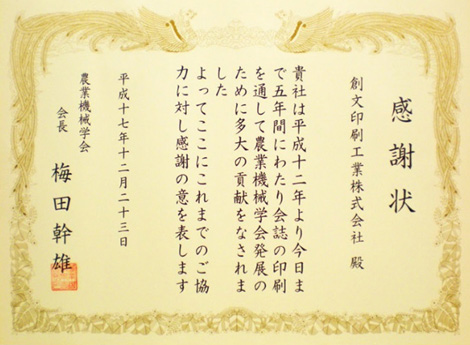 感謝状
創文印刷工業株式会社 殿
貴社は平成十二年より今日ま
で五年間にわたり会誌の印刷
を通して農業機械学会発展の
ために多大の貢献をなされま
した
よってここにこれまでのご協
力に対し感謝の意を表します
平成十七年十二月二十三日
農業機械学会
会長 梅田幹雄